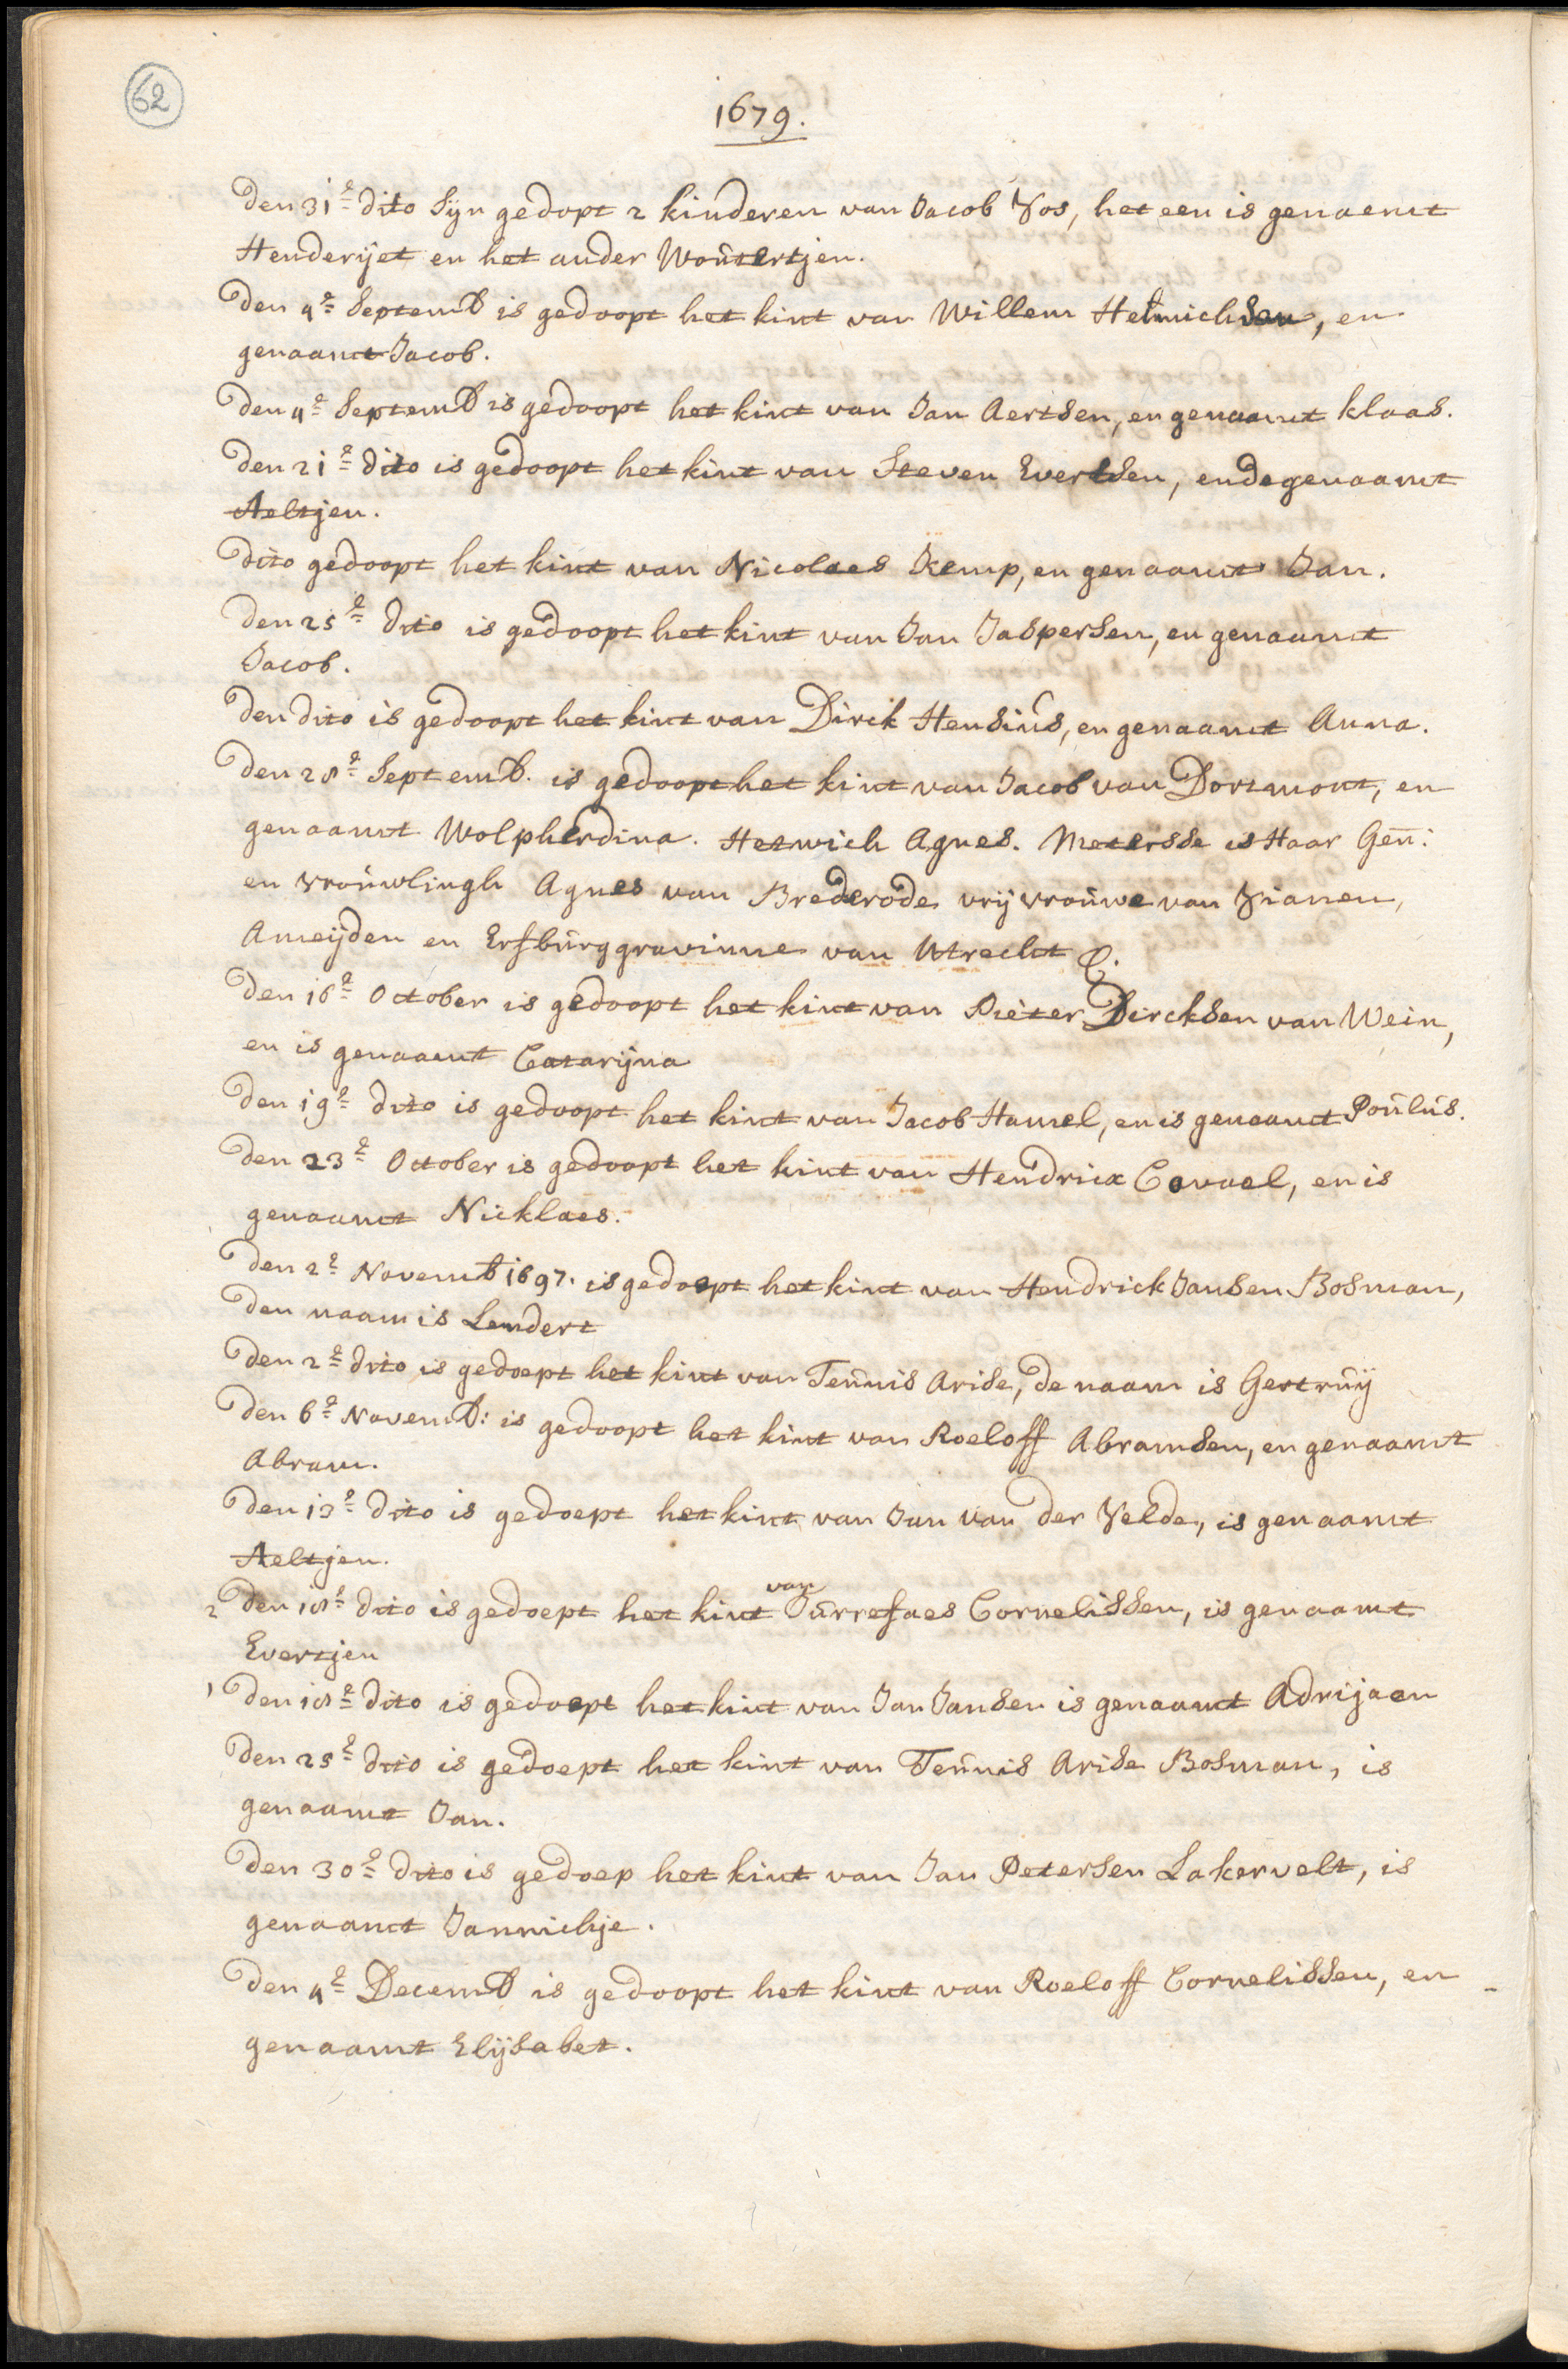 62
1679.
Den 31e dito Sijn gedopt 2 kinderen van Jacob Vos, het een is genaemt
Henderijet en het ander Woutertjen.
Den 4e Septemb is gedoopt het kint van Willem Helmichsen, en
genaamt Jacob.
Den 4e Septemb is gedoopt het kint van Jan Aertsen, en genaamt Klaas.
Den 21e dito is gedoopt het kint van Steven Evertsen, ende genaamt
Aeltjen.
Dito gedoopt het kint van Nicolaes Kemp, en genaamt Jan.
Den 25e Dito is gedoopt het kint van Jan Jaspersen, en genaamt
Jacob.
Den dito is gedoopt het kint van Dirck Hensius, en genaamt Anna.
Den 28e Septemb. is gedoopt het kint van Jacob van Dortmont, en
genaamt Wolpherdina. Hetwich Agnes. Metersse is Haar Gen:
en vrouwlingh Agnes van Brederode vrijvrouwe van Vianen,
Ameijden en Erfburggravinne van Utrecht &.
Den 16e October is gedoopt het kint van Pieter Dircksen van Wein,
en is genaamt Catarijna
Den 19e dito is gedoopt het kint van Jacob Hamel, en is genaamt Poulus.
Den 23e October is gedoopt het kint van Hendrick Covael, en is
genaamt Nicklaes.
Den 2e Novemb 1697. is gedoept het kint van Hendrick Jansen Bosman,
Den naam is Lendert
Den 2e dito is gedoept het kint van Teunis Arise, de naam is Gertruij
Den 6e Novemb: is gedoopt het kint van Roeloff Abramsen, en genaamt
Abram.
Den 13e dito is gedoept het kint van Jan van der Velde, is genaamt
Aeltjen.
2 Den 18e dito is gedoept het kint van Jurrefaes Cornelissen, is genaamt
Evertjen
1 Den 18e dito is gedoept het kint van Jan Jansen is genaamt Adrijaen
Den 25e dito is gedoept het kint van Teunis Arise Bosman, is
genaamt Jan.
Den 30e dito is gedoep het kint van Jan Petersen Lakervelt, is
genaamt Jannichje.
Den 4e Decemb is gedoopt het kint van Roeloff Cornelissen, en
genaamt Elijsabet.